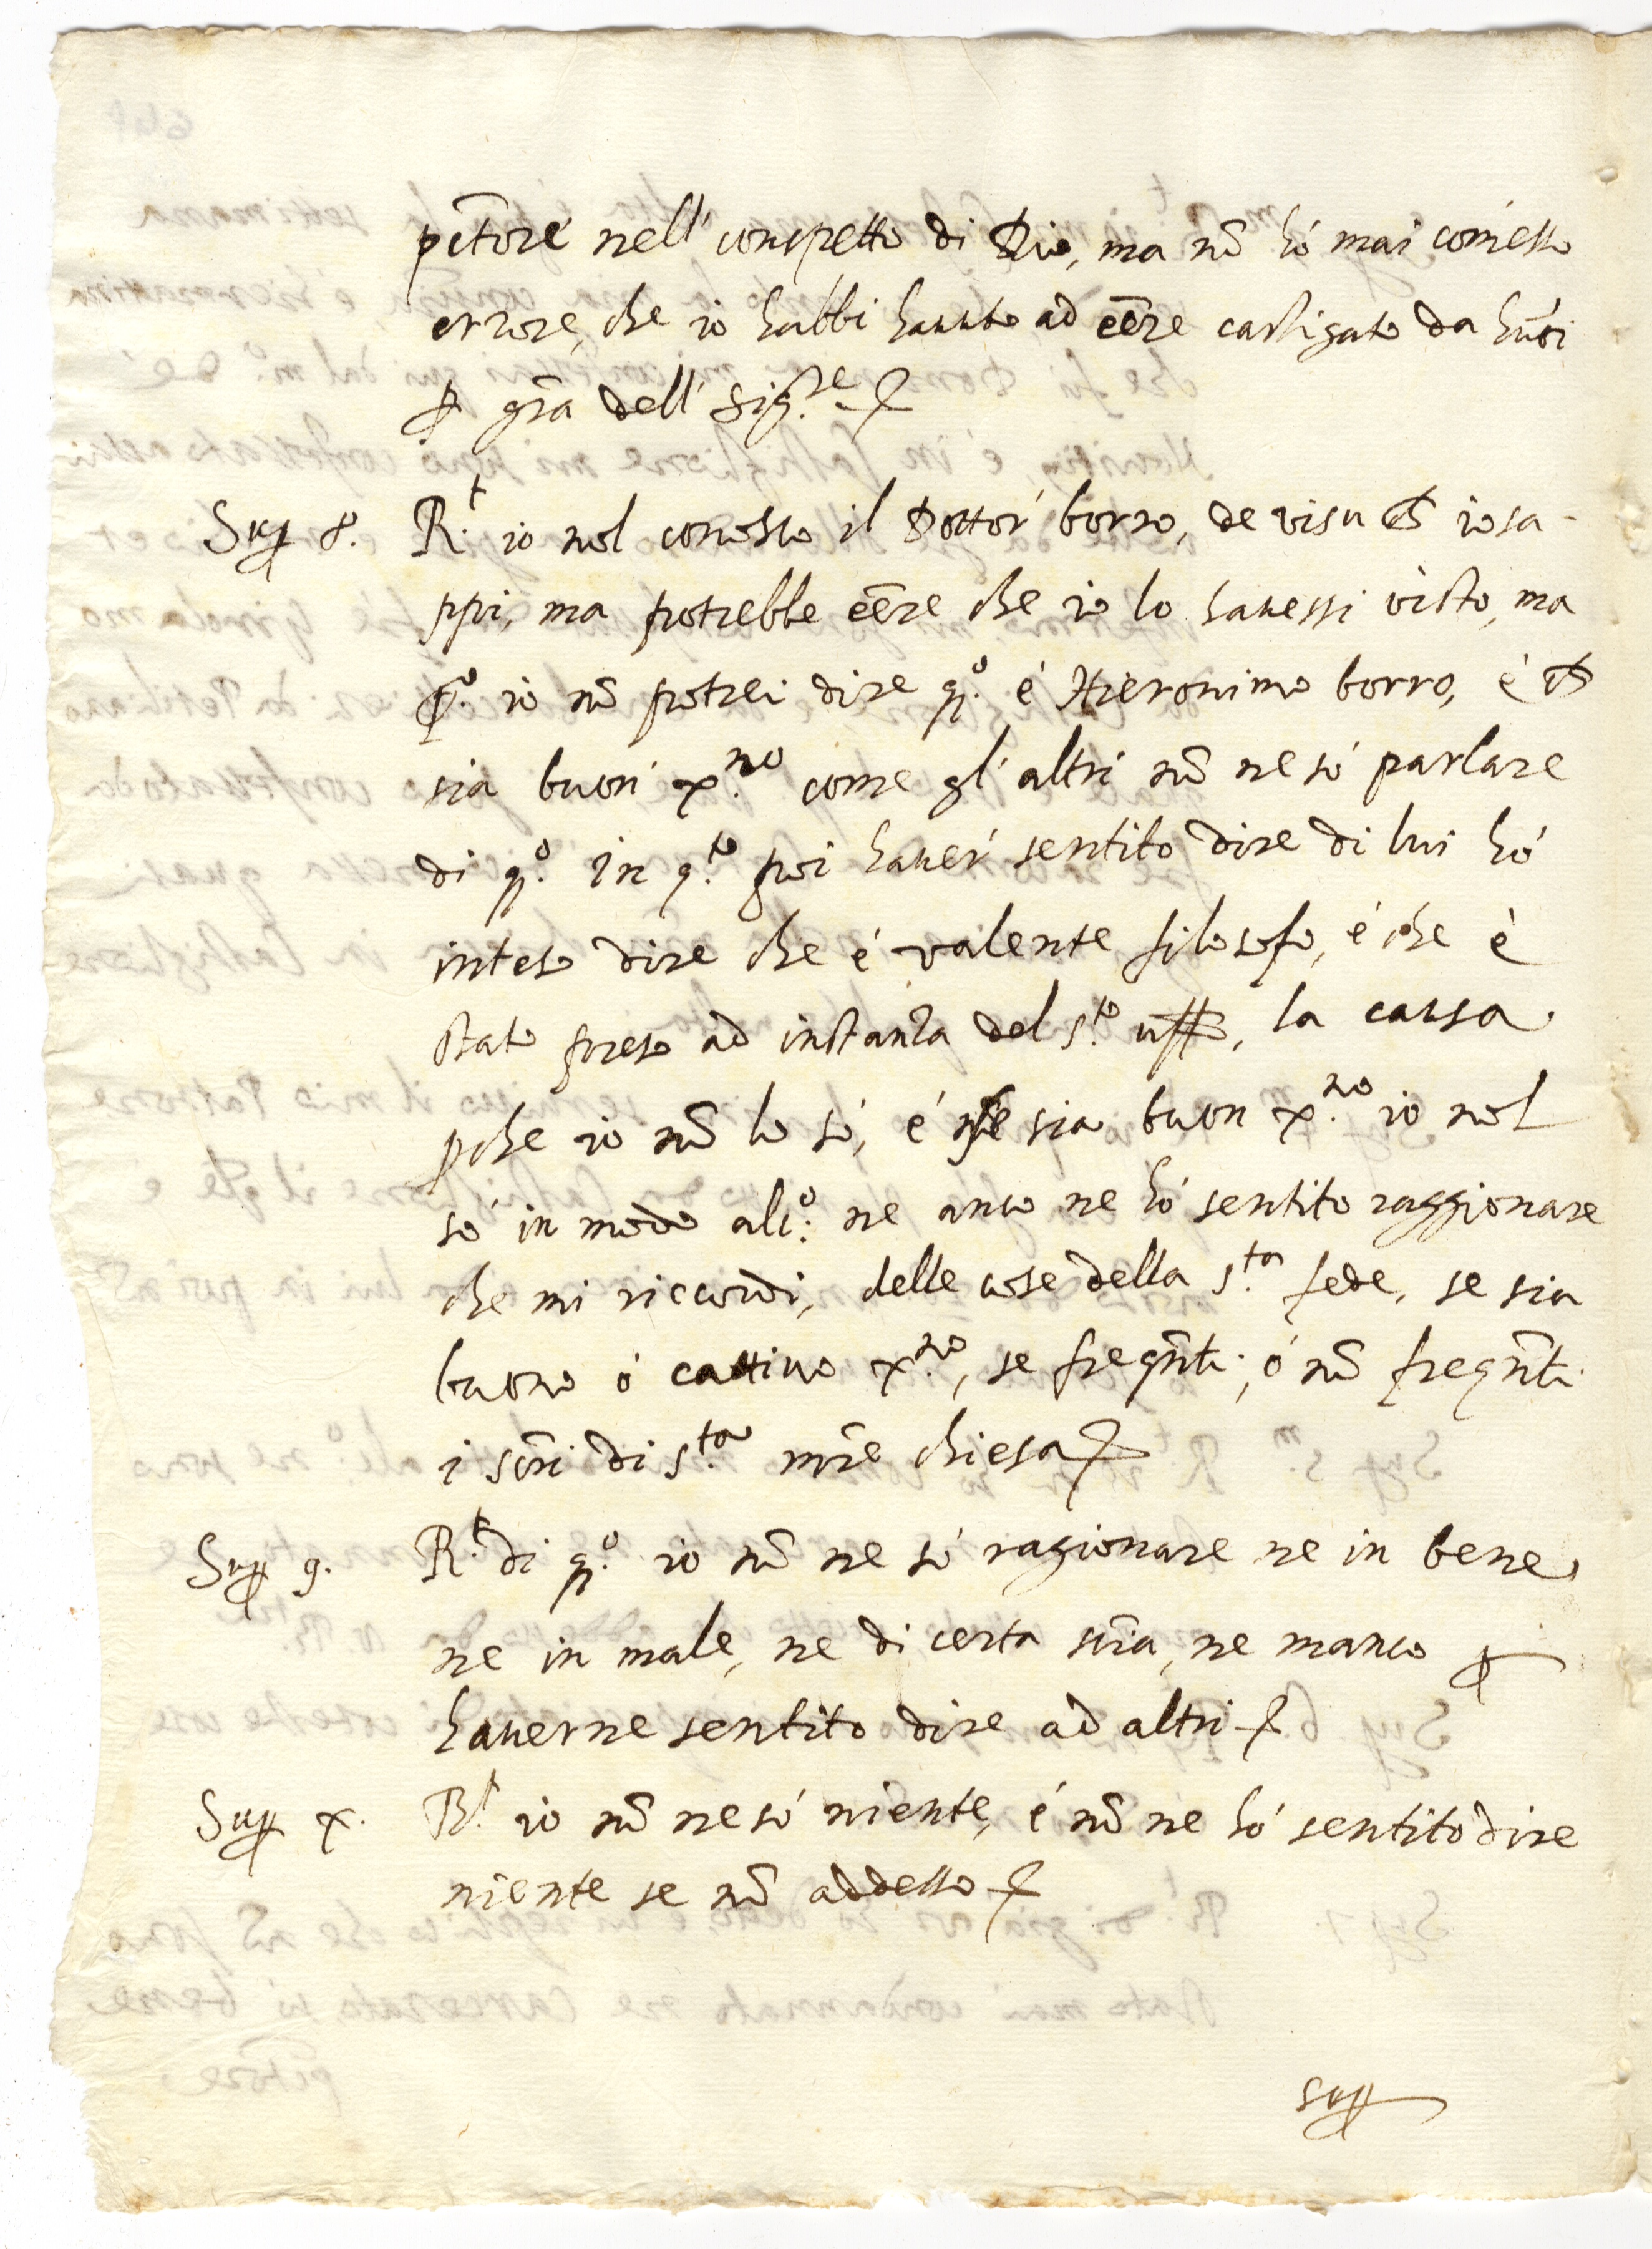 pctore nell' conspetto di Dio, ma nō hó mai comesso
errore, che io habbi hauuto ad eēre castigato da huōi
ꝑ gr̄a dell' Sig.re
Sup 8. R.t io nol conosco il Dottor borro, de visu ch' io sa-
ppi, ma potrebbe eēre che io lo hauessi visto, ma
ꝑo. io nō potrei dire qo. é Hieronimo borro, é ch'
sia buon xno. come gl' altri nō ne só parlare
di qo. in q.to poi hauer sentito dire di lui hó
inteso dire che é valente filosofo, é che è
stato preso ad instanza del s.to uff, la causa
ꝑche io nō lo só, é che sia buon x.no io nol
só in modo alco. ne anco ne hó sentito raggionare
che mi riccordi, delle cose della s.ta fede, se sia
buono ó cattiuo x.no, se freqn̄ti, ó nō freqn̄ti
i scr̄i di s.ta mr̄e chiesa
Sup 9. R.t di qo. io nō ne só ragionare ne in bene
ne in male, ne di certa scīa, ne manco ꝑ
hauerne sentito dire ad altri
Sup x. R.t io nō ne só niente, é nō ne hó sentito dire
niente se nō addesso
sup